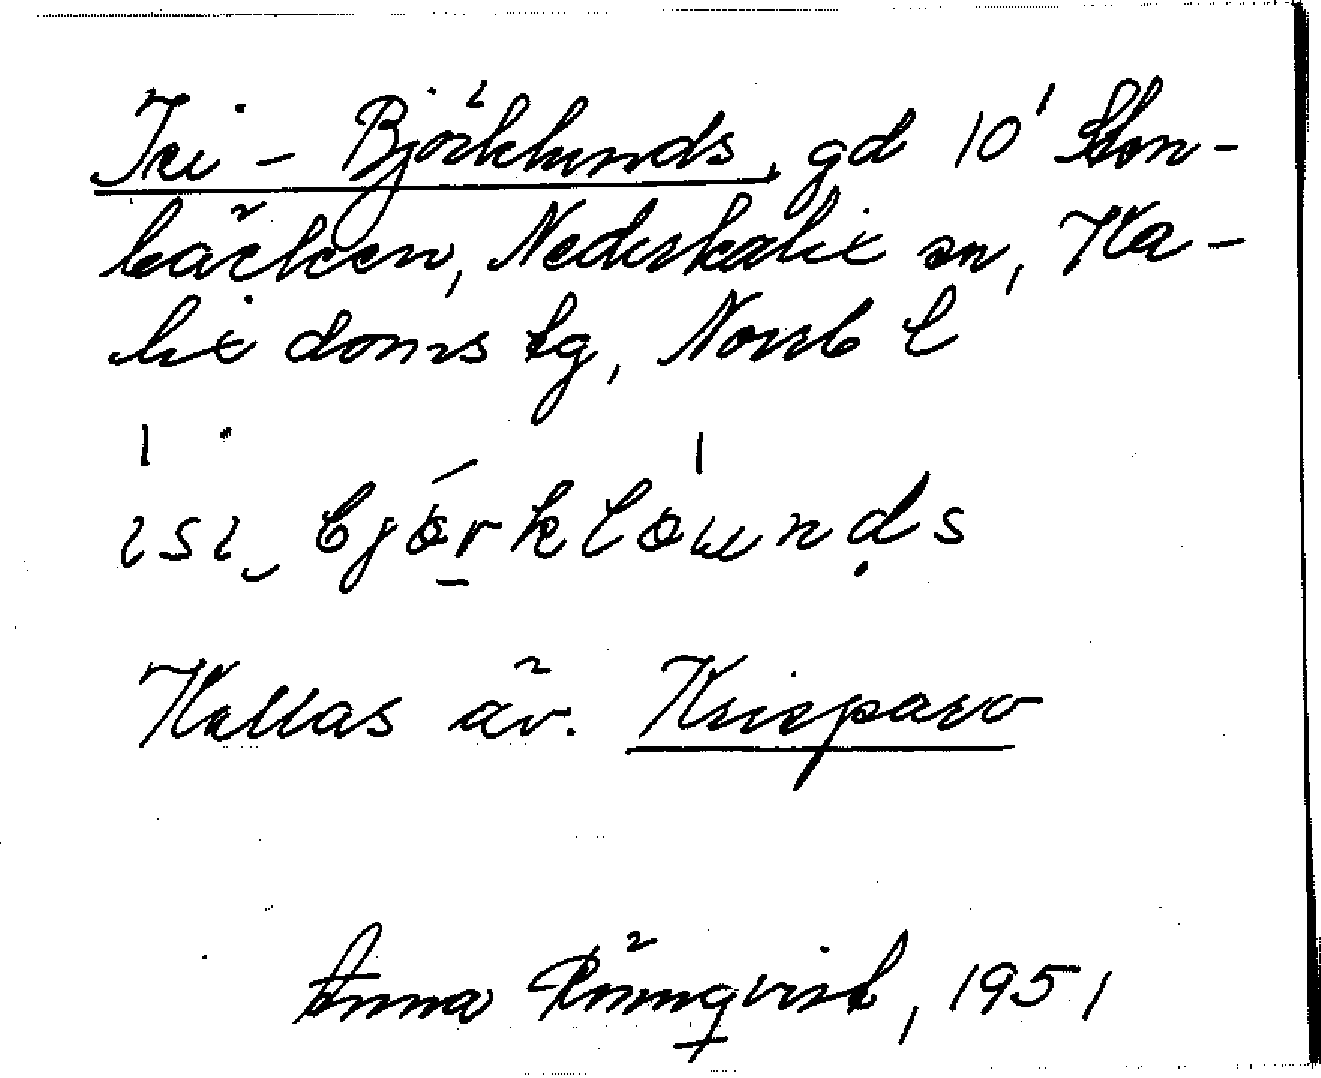 Isi-Björklunds, gd 10' Sten-
bäcken, Nederkalix sn, Ka-
lix doms lg, Norrb l
isi‿ bjǿrkløunds
Kallas äv.
Anna Rönnqvist, 1951